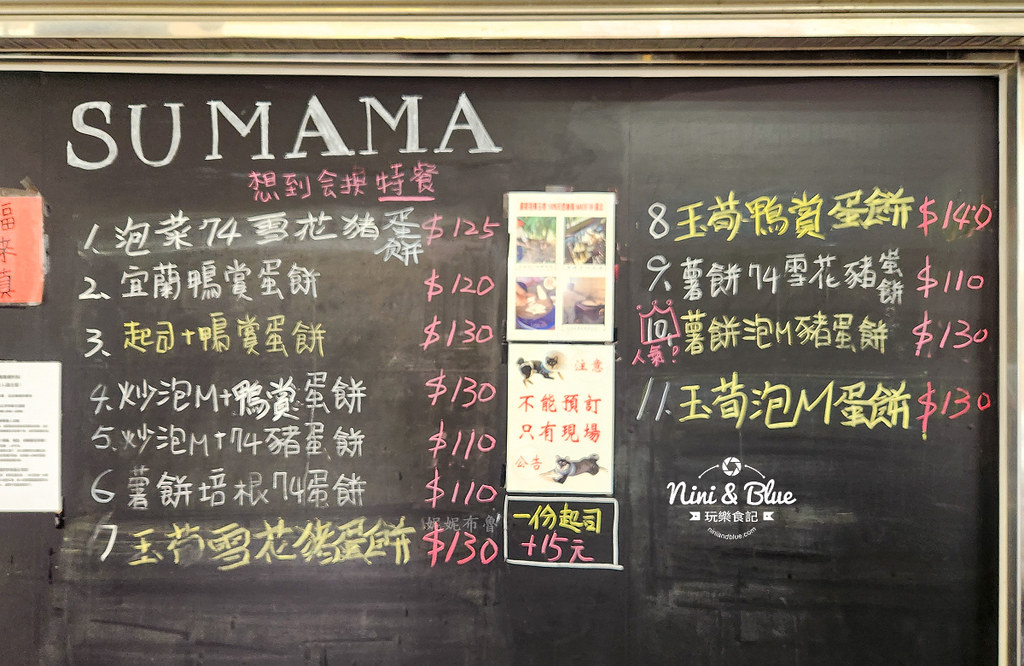 SUMAMA
想到会換特餐
1. 泡菜74雪花豬蛋餅 $125
2. 宜蘭鴨賞蛋餅 $120
3. 起司+鴨賞蛋餅 $130
4. 炒泡M+鴨賞蛋餅 $130
5. 炒泡M+74豬蛋餅 $110
6 薯餅培根74蛋餅 $110
7 玉荀雪花豬蛋餅 $130
福來
注意
不能預訂
只有現場
公告
一份起司
+15元
8 玉荀鴨賞蛋餅 $140
9. 薯餅74雪花豬蛋餅 $110
10. 薯餅泡M豬蛋餅 $130
人氣?
11. 玉荀泡M蛋餅 $130
妮妮布魯
Nini & Blue
玩樂食記
niniandblue.com